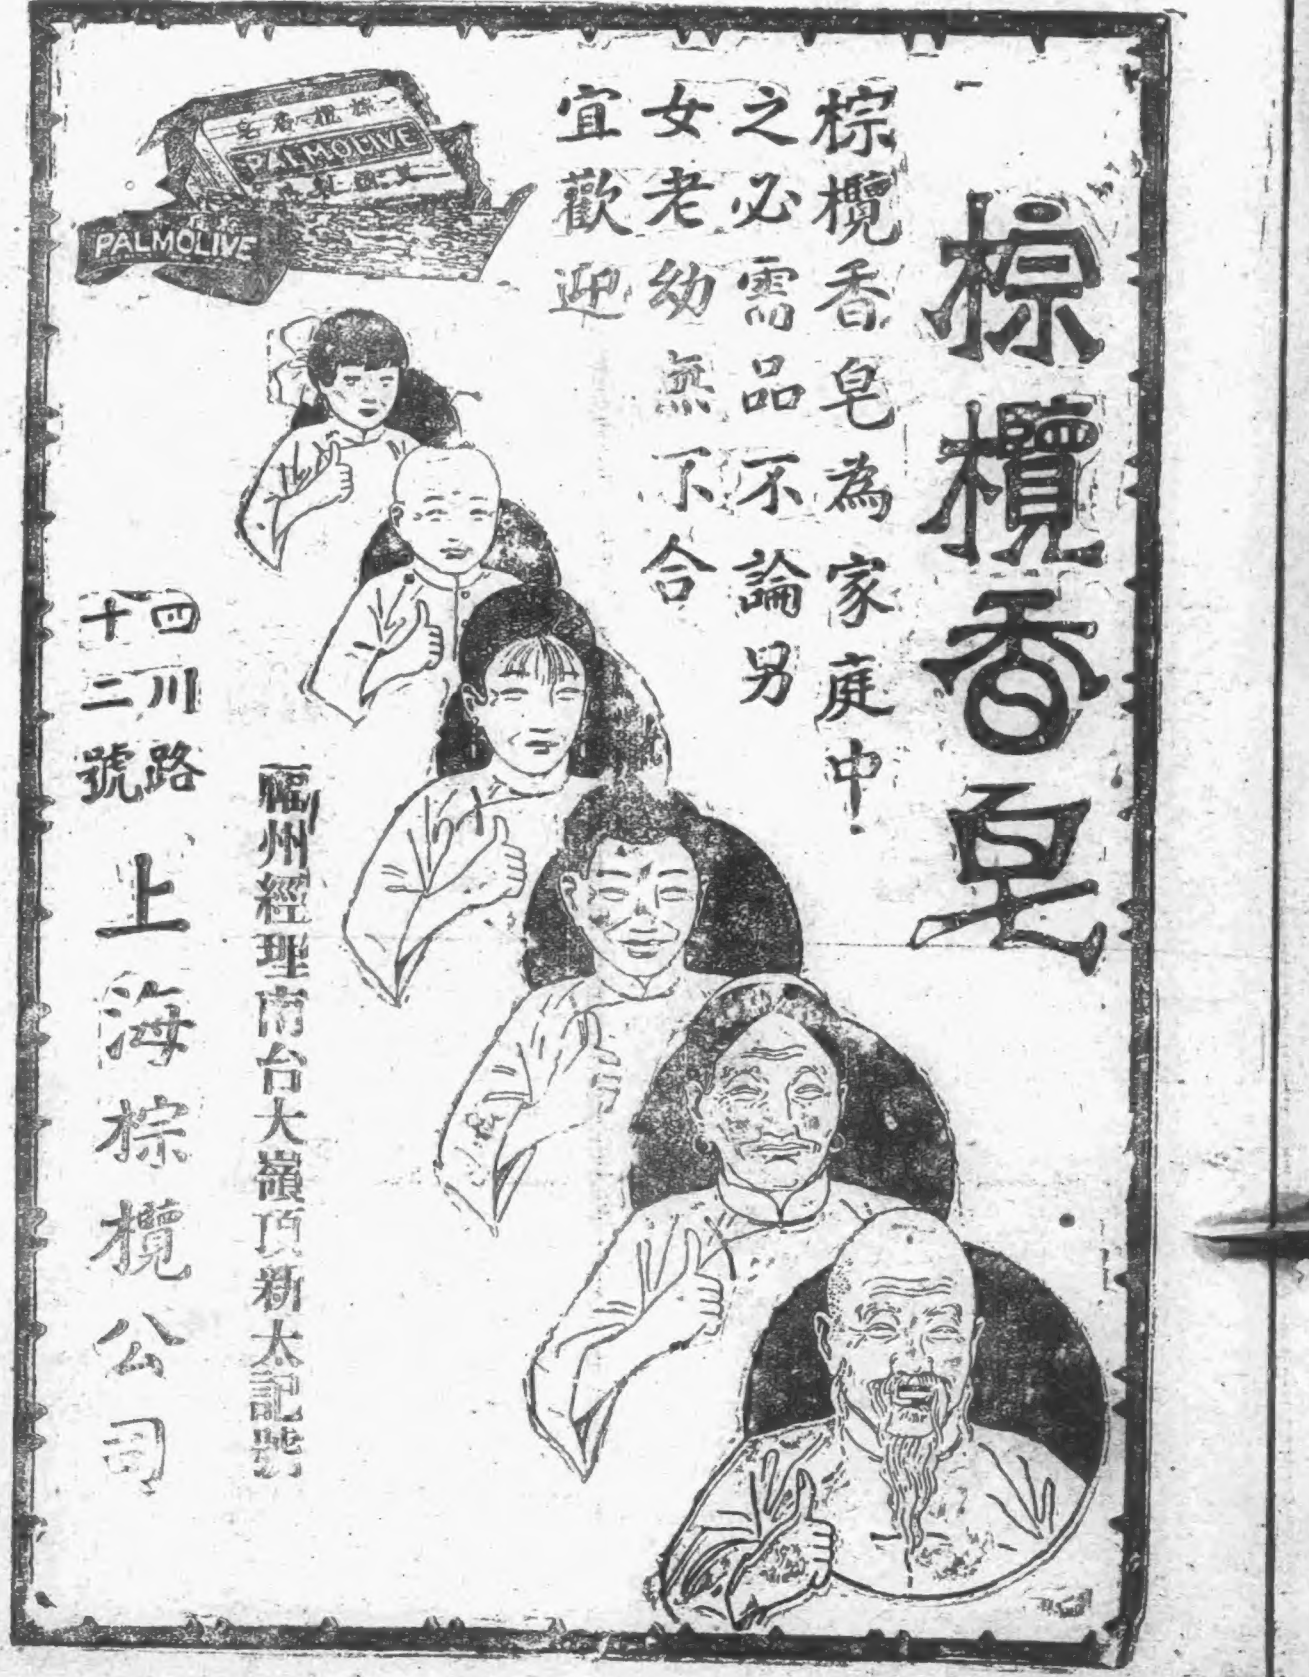 棕欖香皂
棕欖香皂為家庭中
之必需品不論男
女老幼無不合
宜歡迎
PALMOLIVE
PALMOLIVE
福州經理南台大嶺頂新太記號
四川路
十二號
上海棕欖公司